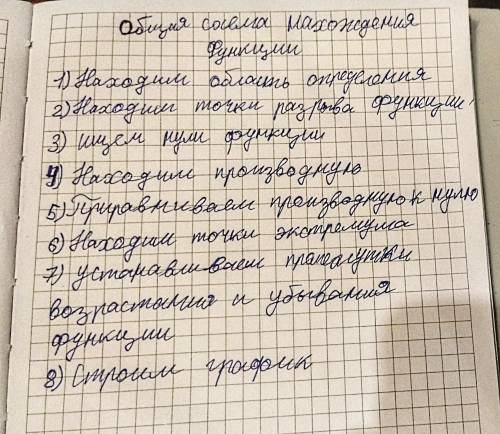 Общая схема нахождения
функции
1) Находим область определения
2) Находим точки разрыва функции
3) ищем нули функции
4) Находим производную
5) Приравниваем производную к нулю
6) Находим точки экстремума
7) устанавливаем промежутки
возрастания и убывания
функции
8) Строим график